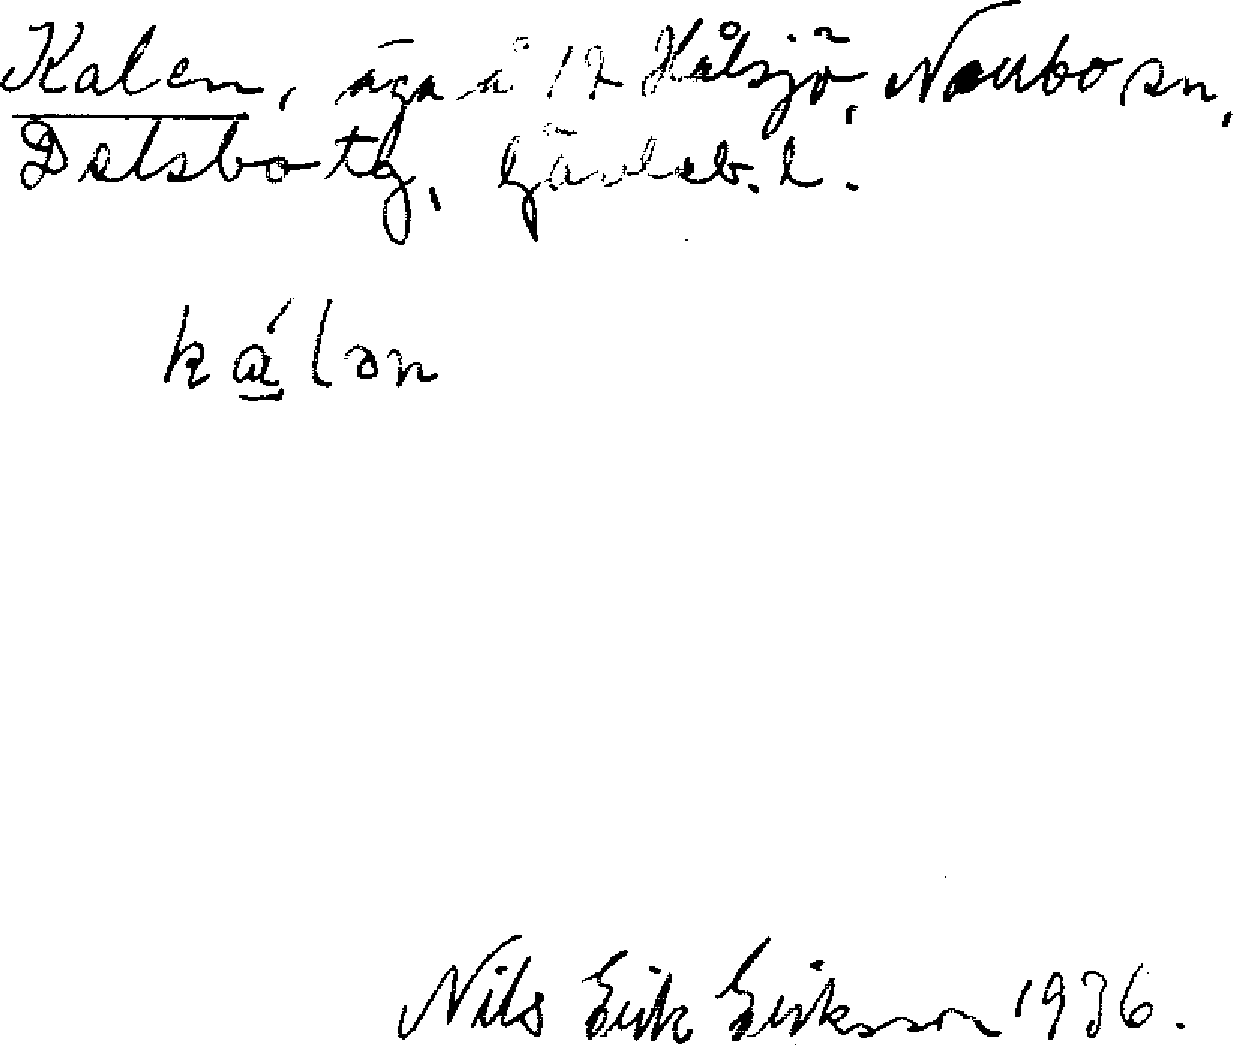 Kalen, äga å 12 Hålsjö, Norrbo sn,
Delsbo tg, Gävleb. l.
ká̱lən
Nils Erik Eriksson 1936.